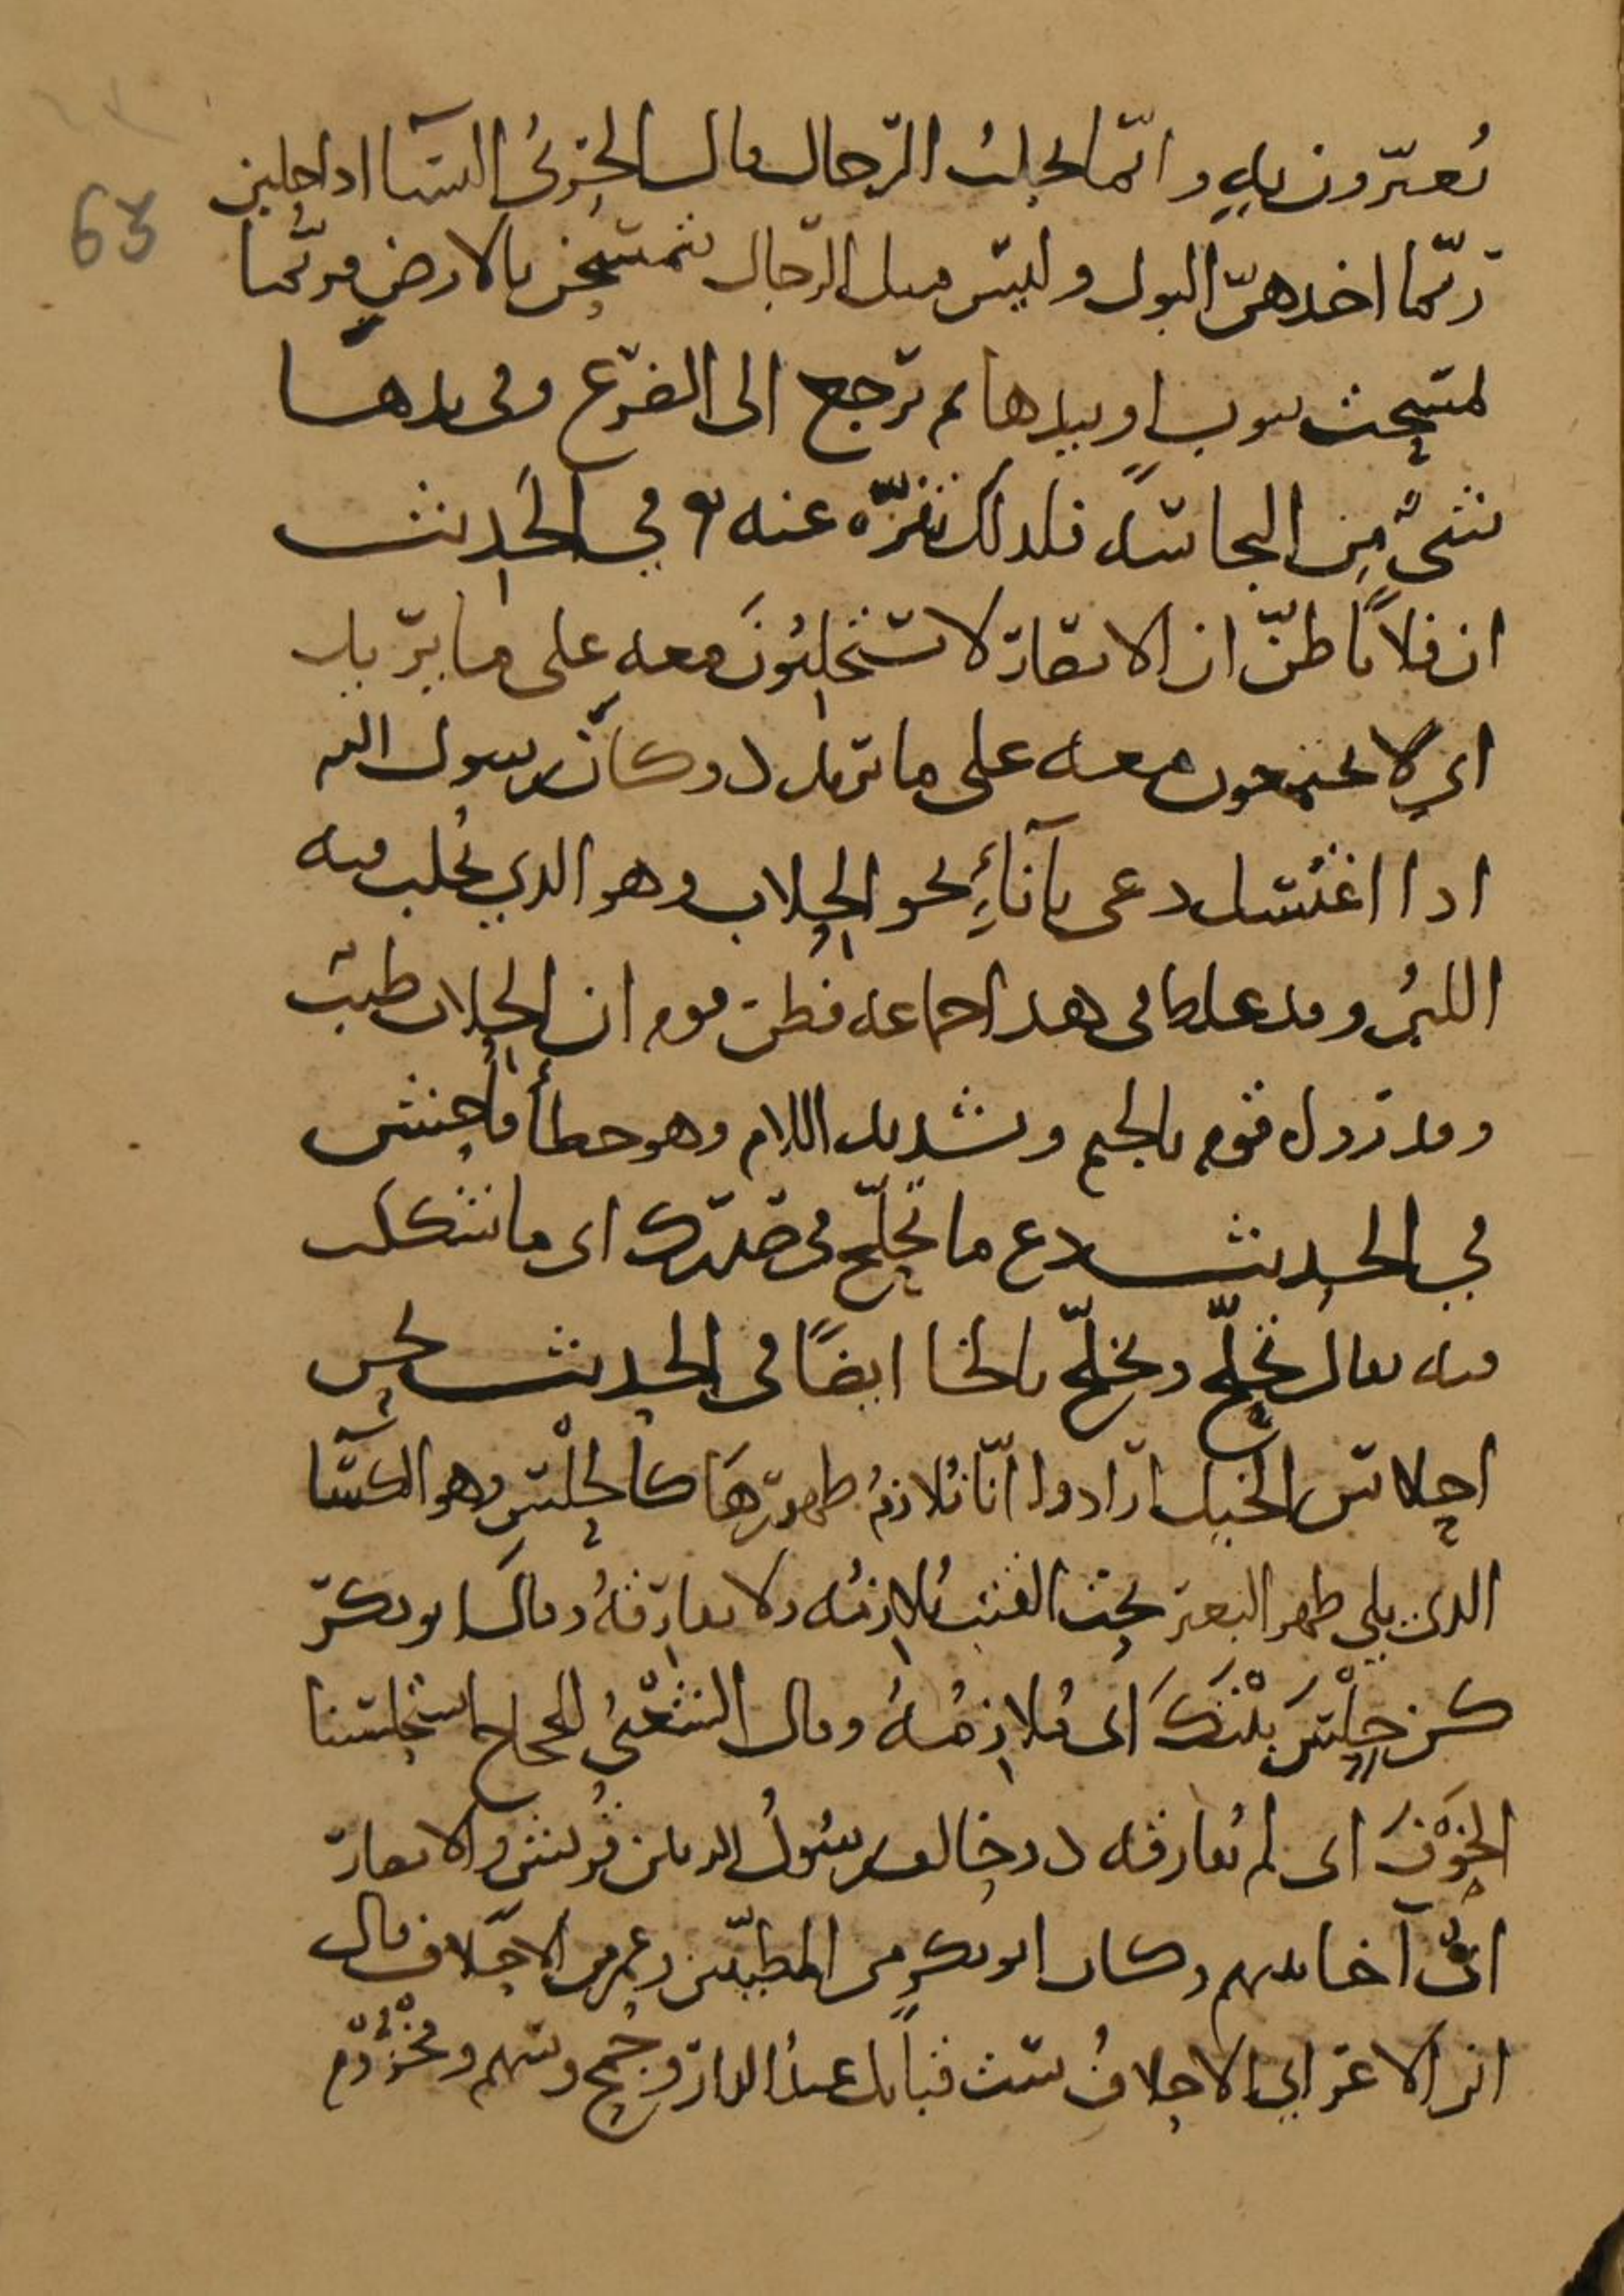 63
يُعيّرون به وانّما يحلبُ الرّجال قال الحَربيُّ النسآ اذا حلبن
ربّما اخذهنّ البول وليس مثل الرّجال يتمسّحن بالارض فربّما
تمسّحت بثوبٍ او بيدها ثم ترجع الى الضرع وفي يدها
شيٌ مِن النجاسة فلذلك تنزّه عنه ۞ في الحديث
ان فلاناً ظنّ ان الانصار لا يستحلبُونَ معه على ما يريد
اي لا يجتمعون معه على ما يريد ۞ وكان رسول الله
اذا اغتسل دعى بآناءٍ نحو الحِلاب وهو الذي يُحلب فيه
اللبنُ وقد غلط في هذا جماعة فظن قوم ان الحِلاب طيبٌ
وقد رواه قوم بالجيم وتشديد اللام وهو خطأ فاحش
في الحديث دع ما تحلّج في صدرك اي ما شككت
فيه يقال تحلّج وتخلّج بالخا ايضًا في الحديث نحن
احلاس الخيل ارادوا انّا نُلازمُ ظهورَهَا كالحِلْسِ وهو الكسآ
الذي يلي ظهر البعير تحت القتب يُلازمُه ولا يفارقهُ وقال ابو بكر
كن حِلْسَ بيْتكَ اى مُلازِمَهُ وقال الشعْبيُ للحجاج استحلسنا
الخَوْفَ اى لم نُفارقه ۞ وحالف رسُولُ الله بين قُريش والانصار
ايْ آخا بينهم وكان ابو بكر من المطيّبين وعمر من الاحلاف قال
ابن الاعرابي الاحلافُ ستّ قبائل عبدُ الدار وجُمح وسهم ومخْزُوم